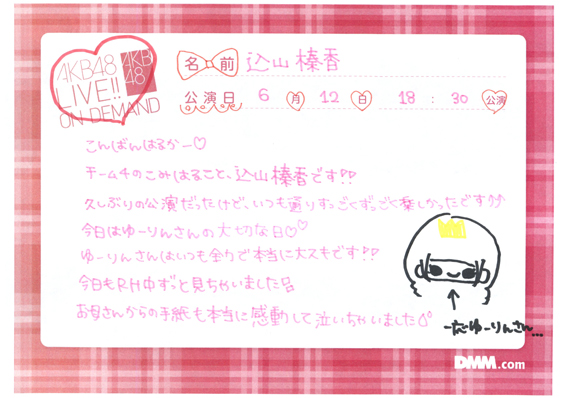 AKB48
LIVE!!
ON DEMAND
AKB
48
名前 込山榛香
公演日 6 月 12 日 18:30 公演
こんばんはるかー♡
チーム4のこみはること、込山榛香です!!
久しぶりの公演だったけど、いつも通りすっごくずっごく楽しかったです
今日はゆーりんさんの大切な日♡♡
ゆーりんさんはいつも全力で本当に大スキです!!
今日もRH中ずっと見ちゃいました
お母さんからの手紙も本当に感動して泣いちゃいました
ゆーりんさん...
DMM.com